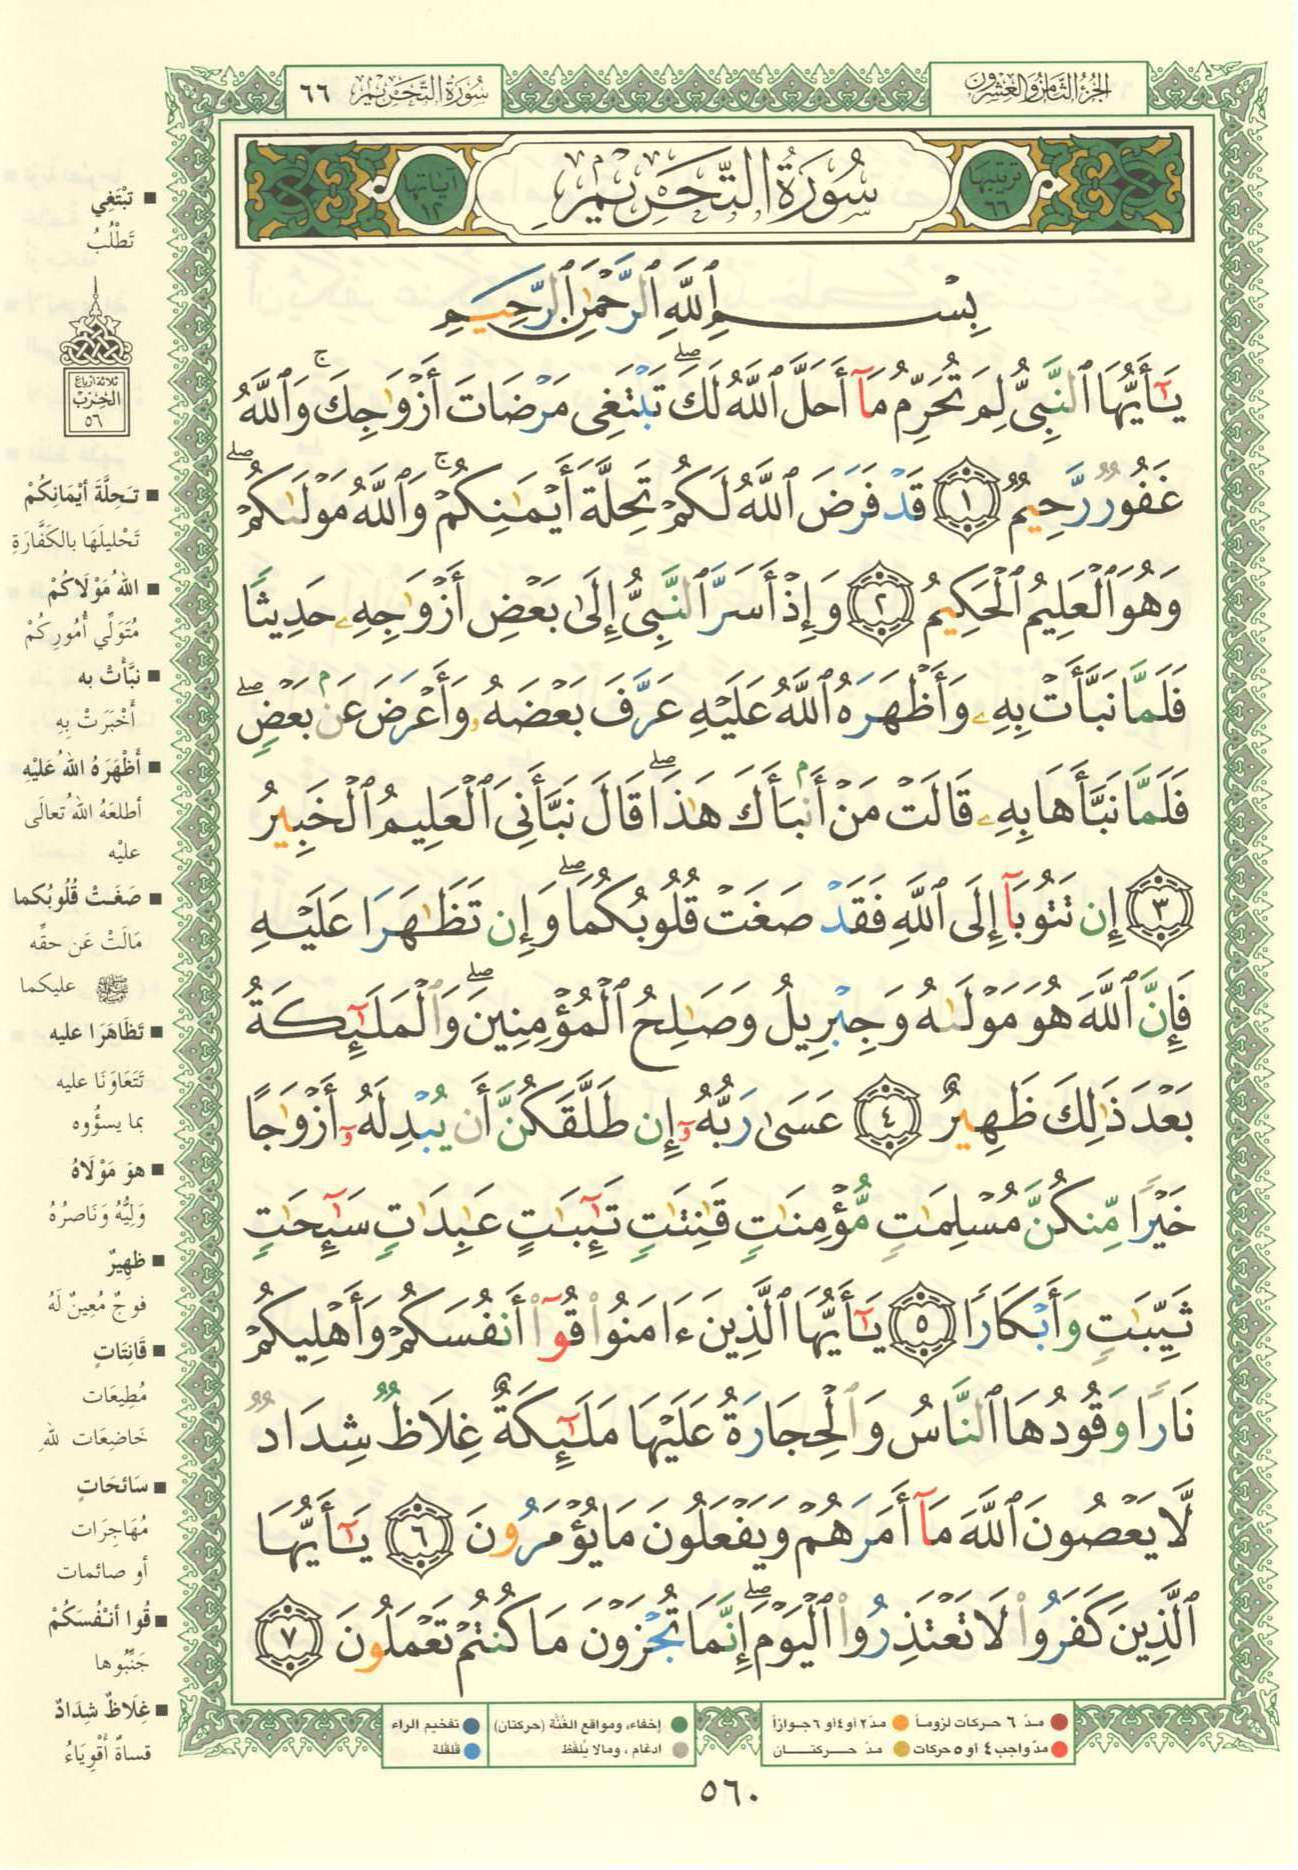 الجزء الثامن والعشرون
سورة التحريم ٦٦
ترتيبها ٦٦
سُورَةُ التَّحْرِيمِ
آياتها ١٢
بِسْمِ ٱللَّهِ ٱلرَّحْمَٰنِ ٱلرَّحِيمِ
يَـٰٓأَيُّهَا ٱلنَّبِىُّ لِمَ تُحَرِّمُ مَآ أَحَلَّ ٱللَّهُ لَكَ ۖ تَبْتَغِى مَرْضَاتَ أَزْوَٰجِكَ ۚ وَٱللَّهُ
غَفُورٌ رَّحِيمٌ ١ قَدْ فَرَضَ ٱللَّهُ لَكُمْ تَحِلَّةَ أَيْمَـٰنِكُمْ ۚ وَٱللَّهُ مَوْلَىٰكُمْ ۖ
وَهُوَ ٱلْعَلِيمُ ٱلْحَكِيمُ ٢ وَإِذْ أَسَرَّ ٱلنَّبِىُّ إِلَىٰ بَعْضِ أَزْوَٰجِهِۦ حَدِيثًا
فَلَمَّا نَبَّأَتْ بِهِۦ وَأَظْهَرَهُ ٱللَّهُ عَلَيْهِ عَرَّفَ بَعْضَهُۥ وَأَعْرَضَ عَنۢ بَعْضٍ ۖ
فَلَمَّا نَبَّأَهَا بِهِۦ قَالَتْ مَنْ أَنۢبَأَكَ هَـٰذَا ۖ قَالَ نَبَّأَنِىَ ٱلْعَلِيمُ ٱلْخَبِيرُ
٣ إِن تَتُوبَآ إِلَى ٱللَّهِ فَقَدْ صَغَتْ قُلُوبُكُمَا ۖ وَإِن تَظَـٰهَرَا عَلَيْهِ
فَإِنَّ ٱللَّهَ هُوَ مَوْلَىٰهُ وَجِبْرِيلُ وَصَـٰلِحُ ٱلْمُؤْمِنِينَ ۖ وَٱلْمَلَـٰٓئِكَةُ
بَعْدَ ذَٰلِكَ ظَهِيرٌ ٤ عَسَىٰ رَبُّهُۥٓ إِن طَلَّقَكُنَّ أَن يُبْدِلَهُۥٓ أَزْوَٰجًا
خَيْرًا مِّنكُنَّ مُسْلِمَـٰتٍ مُّؤْمِنَـٰتٍ قَـٰنِتَـٰتٍ تَـٰٓئِبَـٰتٍ عَـٰبِدَٰتٍ سَـٰٓئِحَـٰتٍ
ثَيِّبَـٰتٍ وَأَبْكَارًا ٥ يَـٰٓأَيُّهَا ٱلَّذِينَ ءَامَنُوا۟ قُوٓا۟ أَنفُسَكُمْ وَأَهْلِيكُمْ
نَارًا وَقُودُهَا ٱلنَّاسُ وَٱلْحِجَارَةُ عَلَيْهَا مَلَـٰٓئِكَةٌ غِلَاظٌ شِدَادٌ
لَّا يَعْصُونَ ٱللَّهَ مَآ أَمَرَهُمْ وَيَفْعَلُونَ مَا يُؤْمَرُونَ ٦ يَـٰٓأَيُّهَا
ٱلَّذِينَ كَفَرُوا۟ لَا تَعْتَذِرُوا۟ ٱلْيَوْمَ ۖ إِنَّمَا تُجْزَوْنَ مَا كُنتُمْ تَعْمَلُونَ ٧
■ تَبْتَغِي
تَطْلُبُ
ثلاثة أرباع
الحزب
٥٦
■ تَحِلَّةَ أَيْمَانِكُمْ
تَحْلِيلَهَا بالكَفَّارَةِ
■ اللهُ مَوْلَاكُمْ
مُتَوَلِّي أُمُورِكُمْ
■ نَبَّأَتْ به
أَخْبَرَتْ بِهِ
■ أَظْهَرَهُ اللهُ عَلَيْهِ
أطلعَهُ اللهُ تعالَى
عليْه
■ صَغَتْ قُلُوبُكما
مَالَتْ عَن حقِّه
ﷺ عليكما
■ تَظَاهَرَا عليه
تَتَعَاوَنَا عليه
بما يسؤُوه
■ هوَ مَوْلَاهُ
وَلِيُّهُ وَنَاصرُهُ
■ ظَهِيرٌ
فوجٌ مُعِينٌ لَهُ
■ قَانِتَاتٍ
مُطِيعَات
خَاضِعَات لله
■ سَائحَاتٍ
مُهَاجِرَات
أو صائمات
■ قُوا أنْفُسَكُمْ
جَنِّبُوها
■ غِلَاظٌ شِدَادٌ
قساةٌ أقْوِيَاءُ
مدّ ٦ حركات لزوماً
مدّ ٢ أو ٤ أو ٦ جوازاً
إخفاء، ومواقع الغُنَّة (حركتان)
تفخيم الراء
مدّ واجب ٤ أو ٥ حركات
مدّ حركتان
ادغام ، ومالا يُلفَظ
قلقلة
٥٦٠